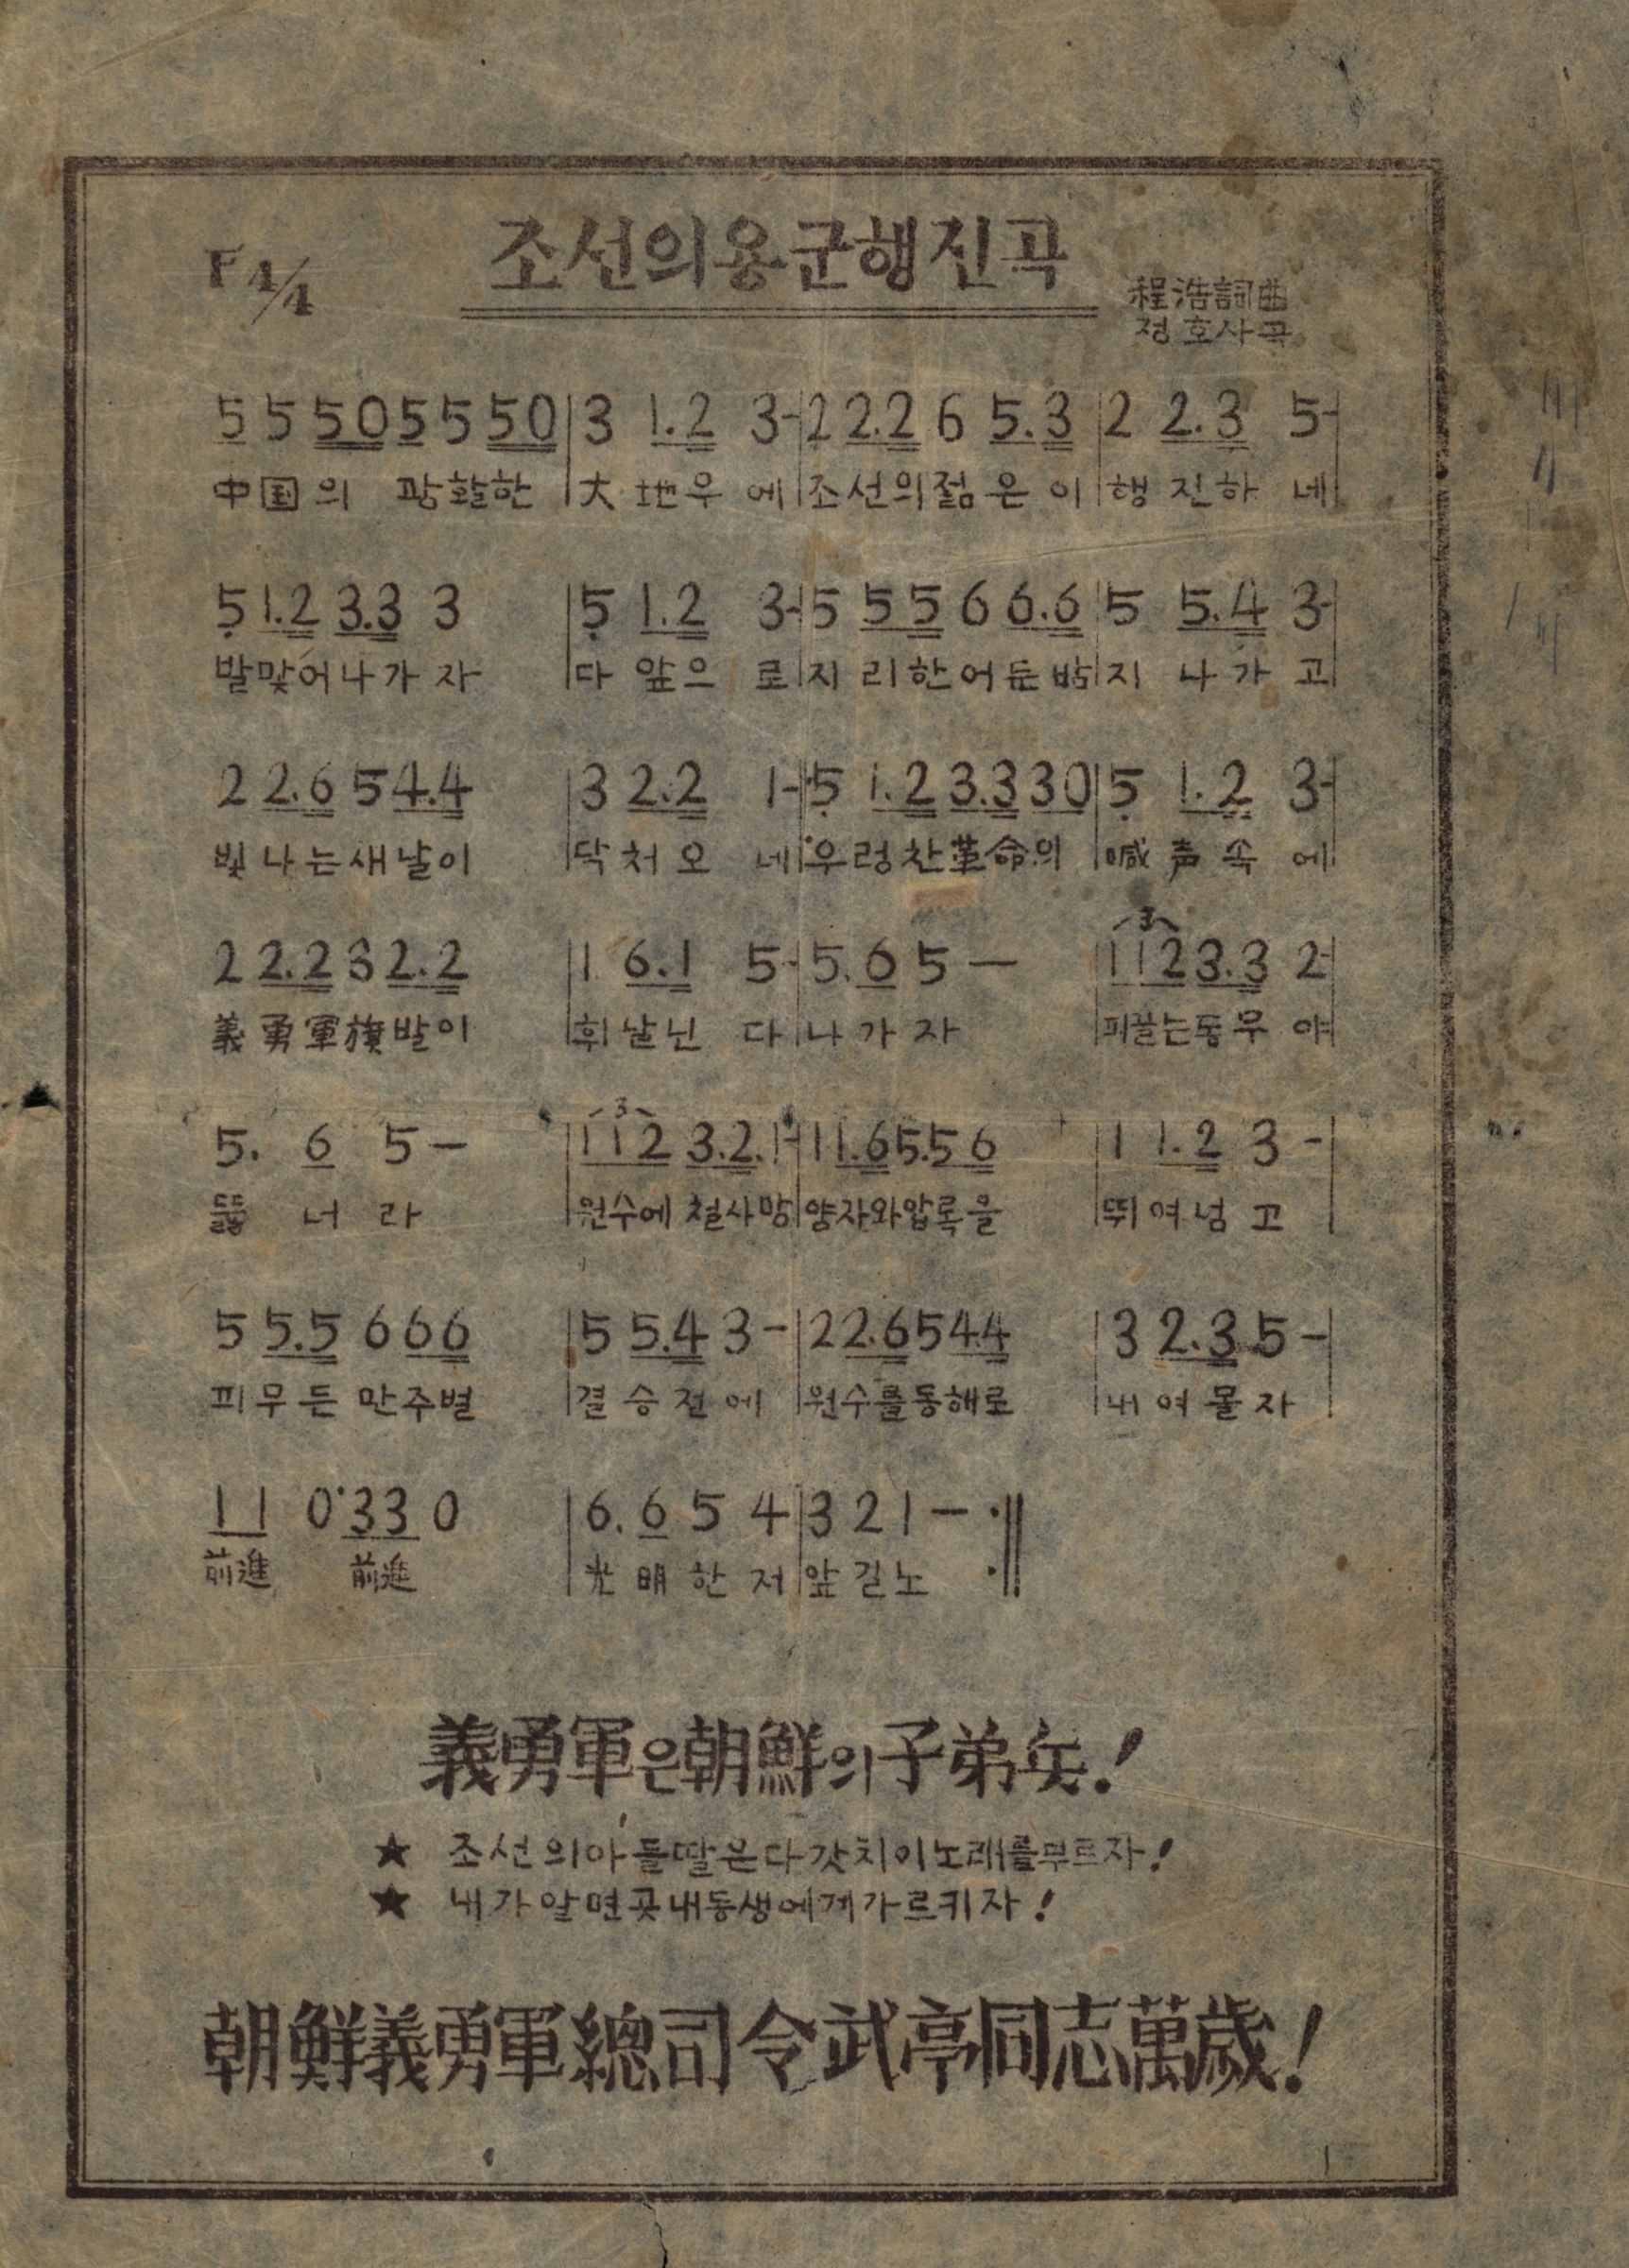 조선의용군행진곡
F 4/4
程浩詞曲
정호사곡
5 5 5 0 5 5 5 0 | 3 1.2 3- | 2 2.2 6 5.3 | 2 2.3 5- |
中国의 광활한 | 大地우에 | 조선의젊은이 | 행진하네
5 1.2 3.3 3 | 5 1.2 3- | 5 5 5 6 6.6 | 5 5.4 3- |
발맞어나가자 | 다앞으로 | 지리한어둔밤 | 지나가고
2 2.6 5 4.4 | 3 2.2 1- | 5 1.2 3.3 3 0 | 5 1.2 3- |
빛나는새날이 | 닥처오네 | 우렁찬革命의 | 喊声속에
3
2 2.2 3 2.2 | 1 6.1 5- | 5. 6 5 — | 1 1 2 3.3 2- |
義勇軍旗발이 | 휘날닌다 | 나가자 | 피끓는동무야
3
5. 6 5 — | 1 1 2 3.2.1- | 1 1.6 5.5 6 | 1 1.2 3 - |
뚫너라 | 원수에철사망 | 양자와압록을 | 뛰여넘고
5 5.5 6 6 6 | 5 5.4 3 - | 2 2.6 5 4.4 | 3 2.3 5 - |
피무든만주벌 | 결승전에 | 원수를동해로 | 내여몰자
1 1 0· 3 3 0 | 6. 6 5 4 | 3 2 1 - :‖
前進 前進 | 光明한저 | 앞길노
義勇軍은朝鮮의子弟兵!
★ 조선의아들딸은다갓치이노래를부르자!
★ 내가알면곳내동생에게가르키자!
朝鮮義勇軍總司令武亭同志萬歲!